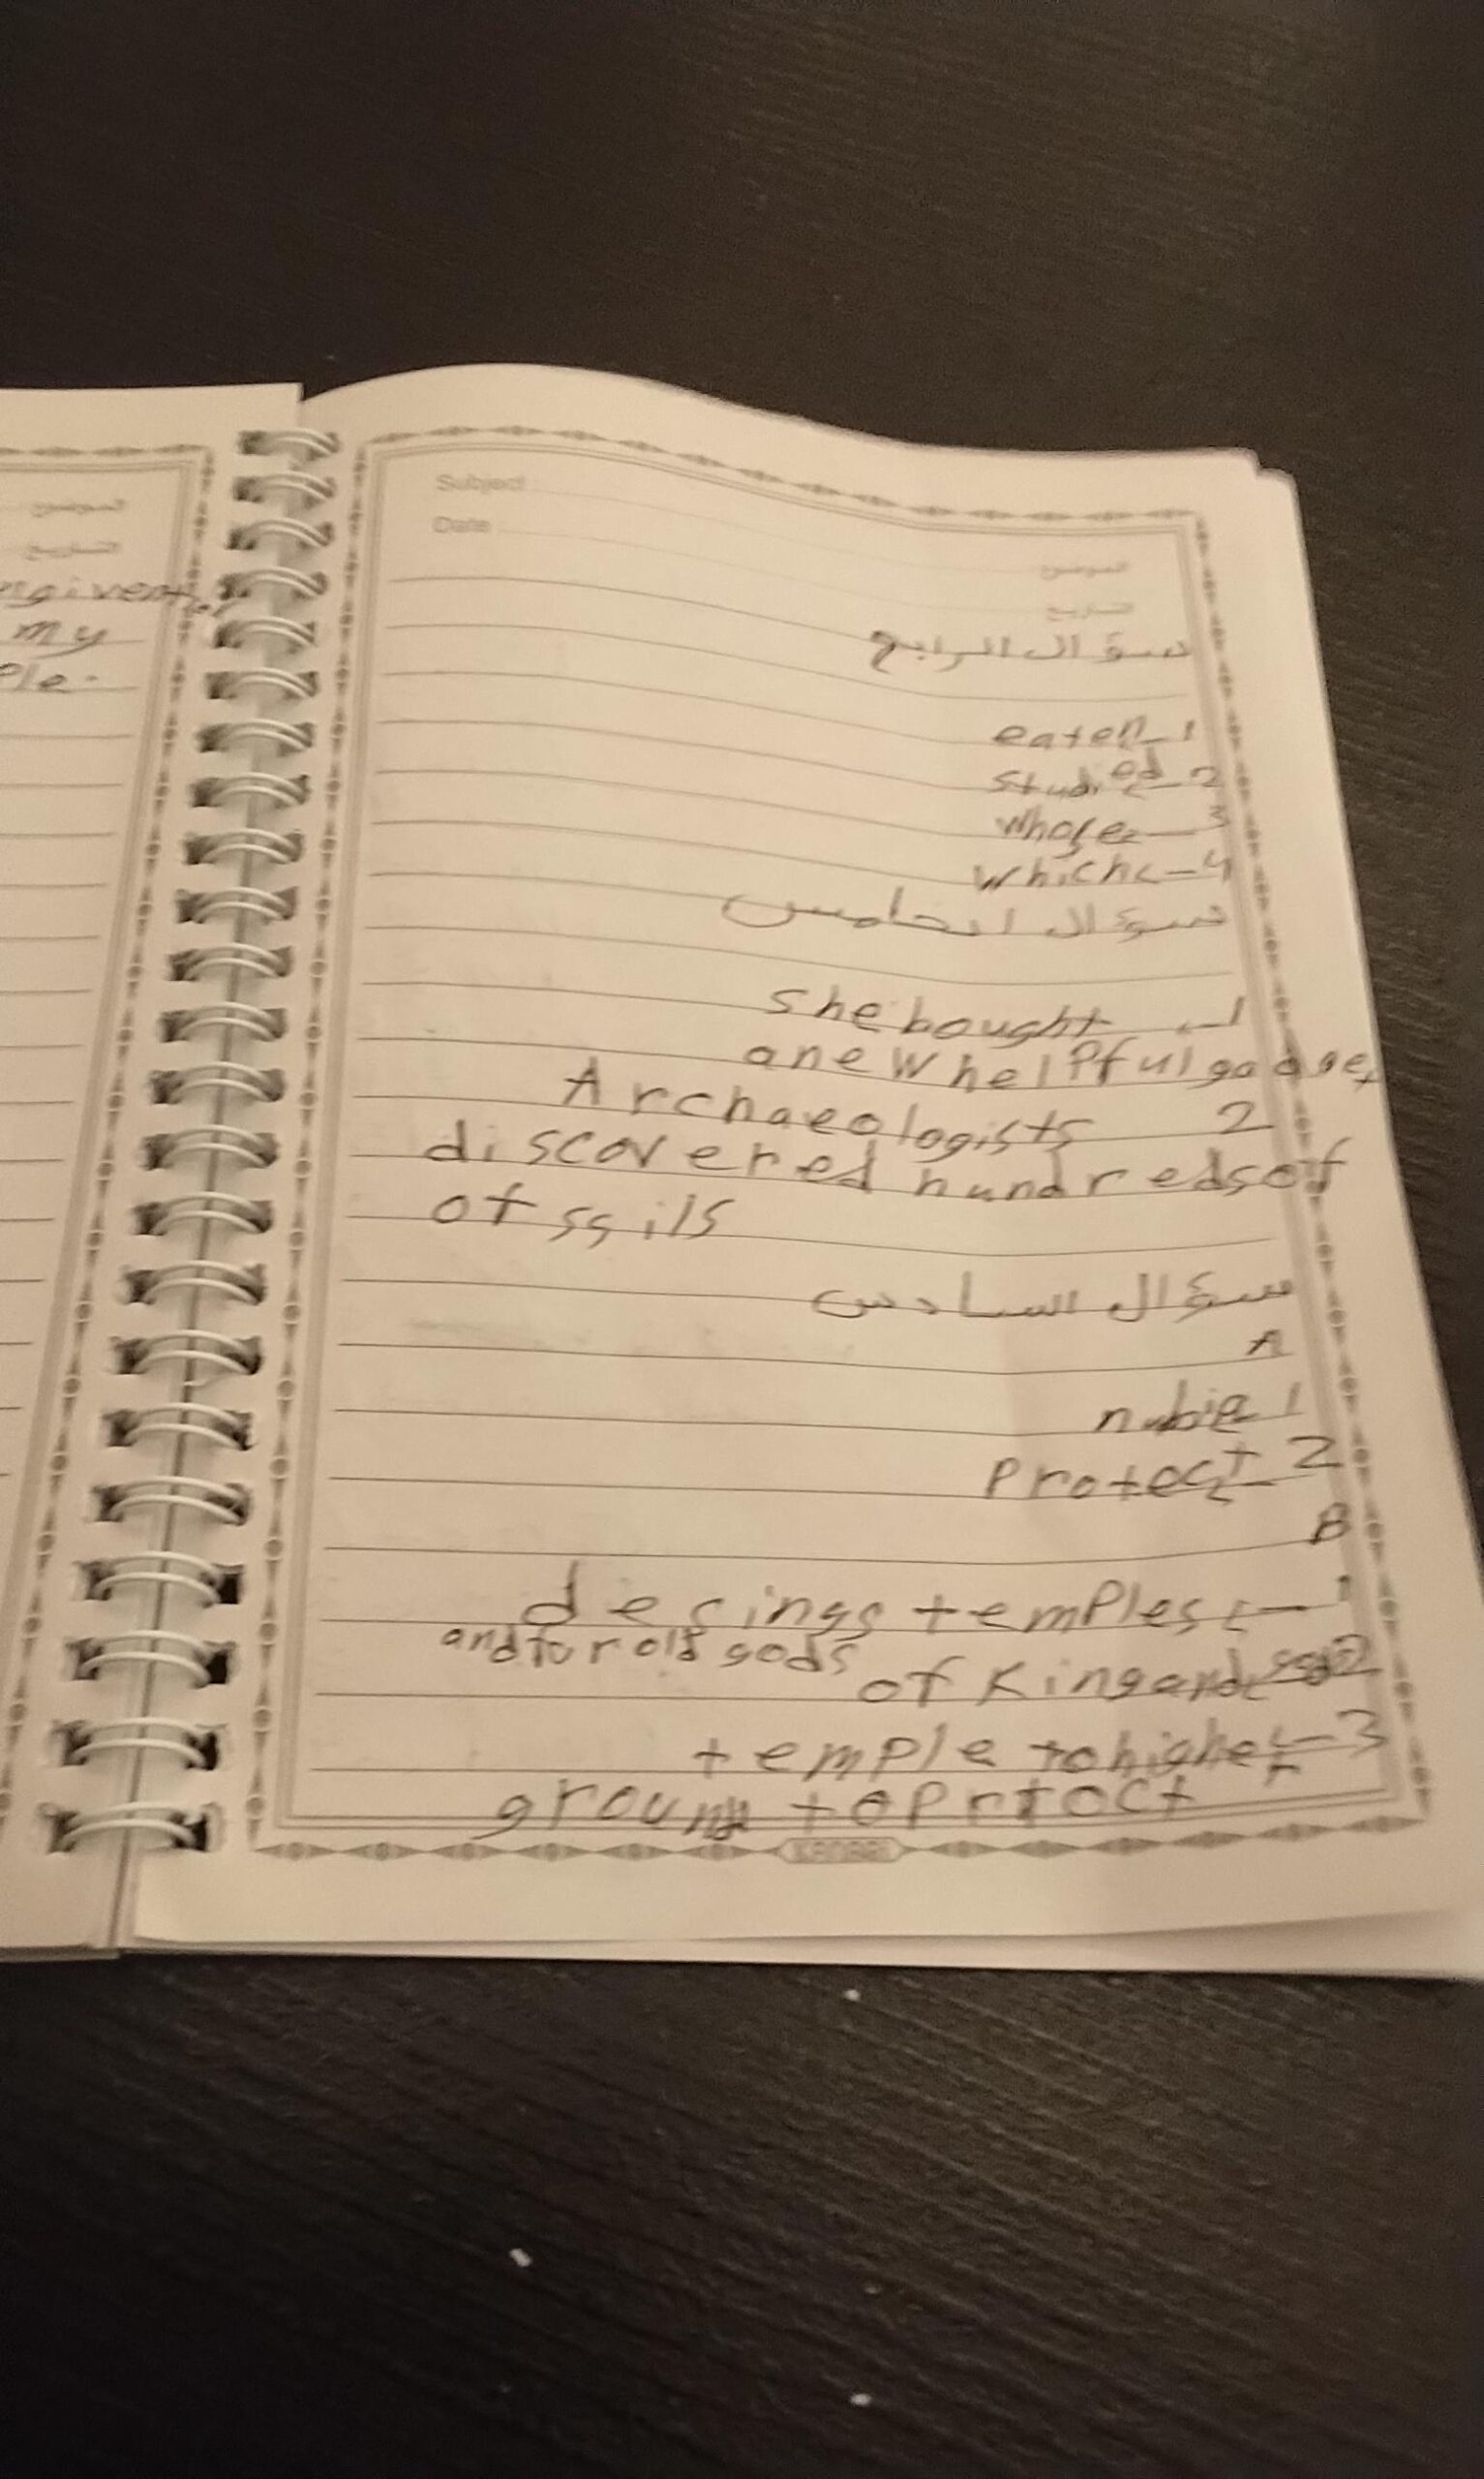 الموضوع
التاريخ
my
Subject
Date
الموضوع
التاريخ
سؤال الرابع
eaten - 1
studied - 2
whose - 3
which - 4
سؤال الخامس
she bought - 1
a new helpful gadget
Archaeologists 2
discovered hundreds of
of ssils
سؤال السادس
A
nubie - 1
Protect - 2
B
desings temples - 1
of King and 2
and for old gods
temple to higher - 3
ground to prtoct